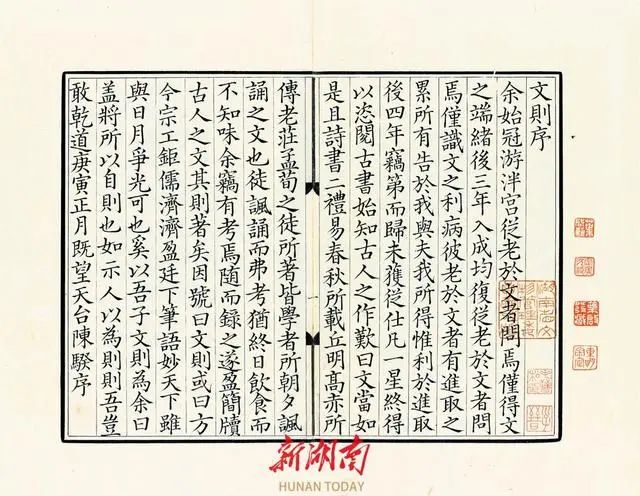 文則序
余始冠游泮宮從老於文者問焉僅得文
之端緒後三年入成均復從老於文者問
焉僅識文之利病彼老於文者有進取之
累所有告於我與夫我所得惟利於進取
後四年竊第而歸未獲從仕凡一星終得
以恣閱古書始知古人之作歎曰文當如
是且詩書二禮易春秋所載丘明髙赤所
一
傳老莊孟荀之徒所著皆學者所朝夕諷
誦之文也徒諷誦而弗考猶終日飲食而
不知味余竊有考焉隨而錄之遂盈簡牘
古人之文其則著矣因號曰文則或曰方
今宗工鉅儒濟濟盈廷下筆語妙天下雖
與日月爭光可也奚以吾子文則為余曰
盖將所以自則也如示人以為則則吾豈
敢乾道庚寅正月既望天台陳騤序
新湖南
HUNAN TODAY